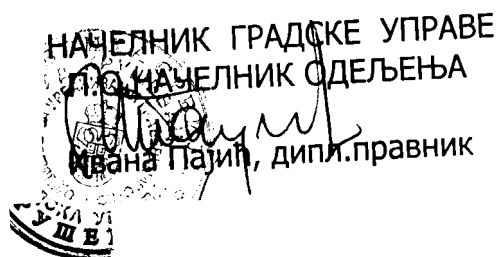 НАЧЕЛНИК ГРАДСКЕ УПРАВЕ
П.О. НАЧЕЛНИК ОДЕЉЕЊА
Ивана Пајић, дипл.правник